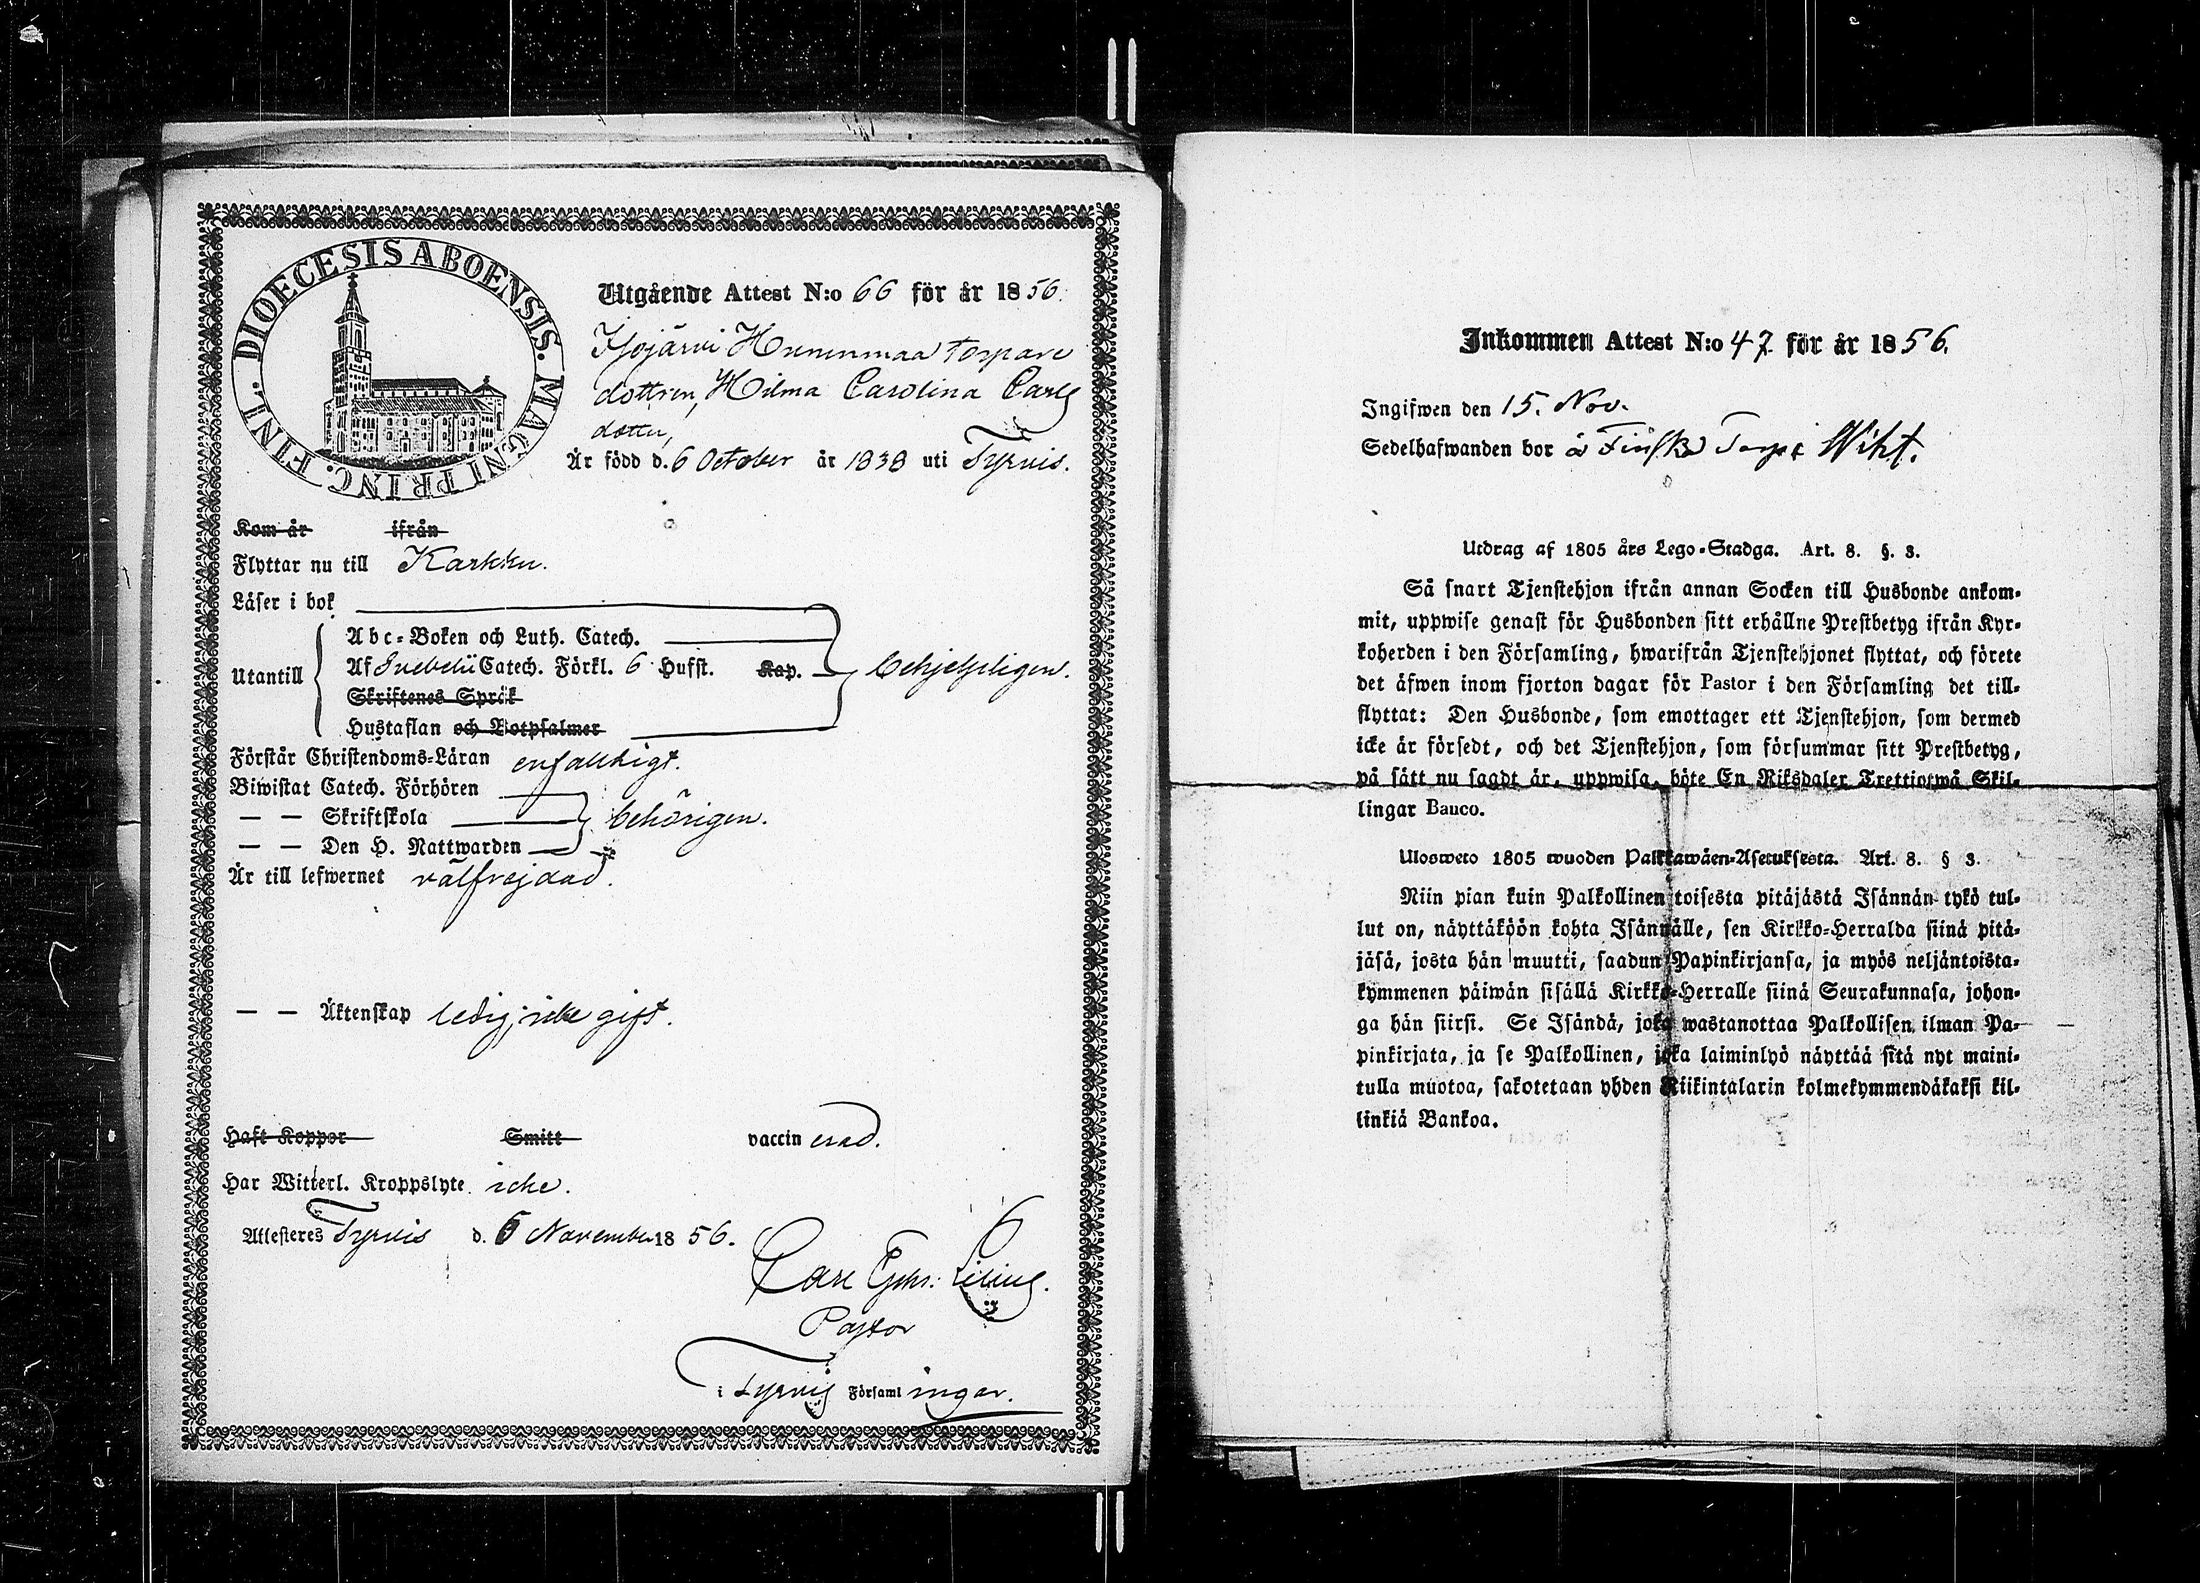 DIOECESIS ABOENSIS. MAGNI PRINC. FINL.
Utgående Attest N:o 66 för år 1856.
Isojärvi Hunnmaa torpare
dottren, Hilma Carolina Carls
dotter,
Är född d. 6 October år 1838 uti Tyrvis.
Kom år ifrån
Flyttar nu till Karkku.
Läser i bok
Abc-Boken och Luth. Catech.
Utantill Af Svebelii Catech. Förkl. 6 Hufst. Kap. behjelpligen.
Skriftenes Språk
Hustaflan och Botpsalmer
Förstår Christendoms-Läran enfaldigt.
Biwistat Catech. Förhören
— — Skriftskola behörigen.
— — Den H. Nattwarden
Är till lefwernet välfrejdad.
— — Äktenskap ledig, icke gift.
Haft Koppor Smitt vaccinerad.
Har Witterl. Kroppslyte icke.
Attesteres Tyrvis d. 6 November 1856.
Carl Lilius.
Pastor
i Tyrvis Församlingar.
Inkommen Attest N:o 47 för år 1856.
Ingifwen den 15. Nov.
Sedelhafwanden bor å Torp Wiht.
Utdrag af 1805 års Lego-Stadga. Art. 8. §. 3.
Så snart Tjenstehjon ifrån annan Socken till Husbonde ankom-
mit, uppwise genast för Husbonden sitt erhållne Prestbetyg ifrån Kyr-
koherden i den Församling, hwarifrån Tjenstehjonet flyttat, och förete
det äfwen inom fjorton dagar för Pastor i den Församling det till-
flyttat: Den Husbonde, som emottager ett Tjenstehjon, som dermed
icke är försedt, och det Tjenstehjon, som försummar sitt Prestbetyg,
på sätt nu sagdt är, uppwisa, böte En Riksdaler Trettiotwå Skil-
lingar Banco.
Ulosweto 1805 wuoden Palkkawäen-Asetuksesta. Art. 8. § 3.
Niin pian kuin Palkollinen toisesta pitäjästä Isännän tykö tul-
lut on, näyttäköön kohta Isännälle, sen Kirkko-Herralda siinä pitä-
jäsä, josta hän muutti, saadun Papinkirjansa, ja myös neljäntoista-
kymmenen päiwän sisällä Kirkko-Herralle siinä Seurakunnasa, johon-
ga hän siirsi. Se Isändä, joka wastanottaa Palkollisen ilman Pa-
pinkirjata, ja se Palkollinen, joka laiminlyö näyttää sitä nyt maini-
tulla muotoa, sakotetaan yhden Riikintalarin kolmekymmendäkaksi kil-
linkiä Bankoa.